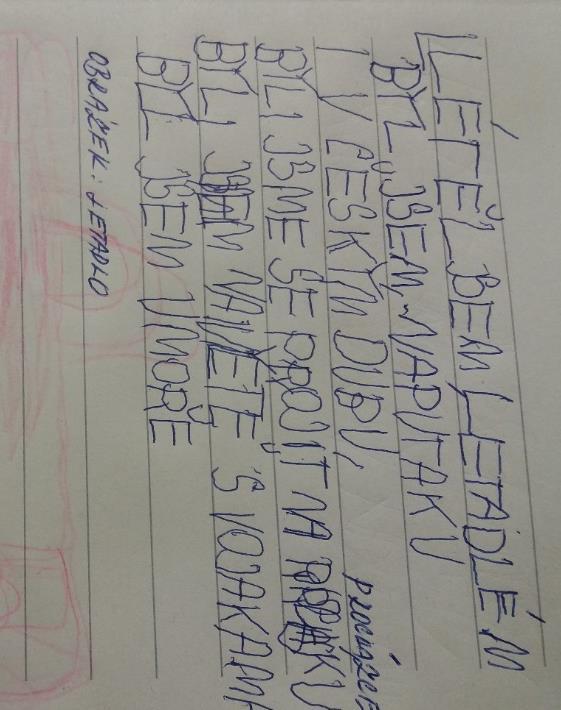 LÉTĚL BEM LETADLÉM
BYL JSEM NA PUŤAKU
I V ČESKÝM DUBU,
BYLI JSME SE PROJÍT NA
PROCHÁZCE
BYLI NA VÝLETĚ S VOJAKAMI
BYL JSEM U MOŘE
OBRÁZEK: LETADLO